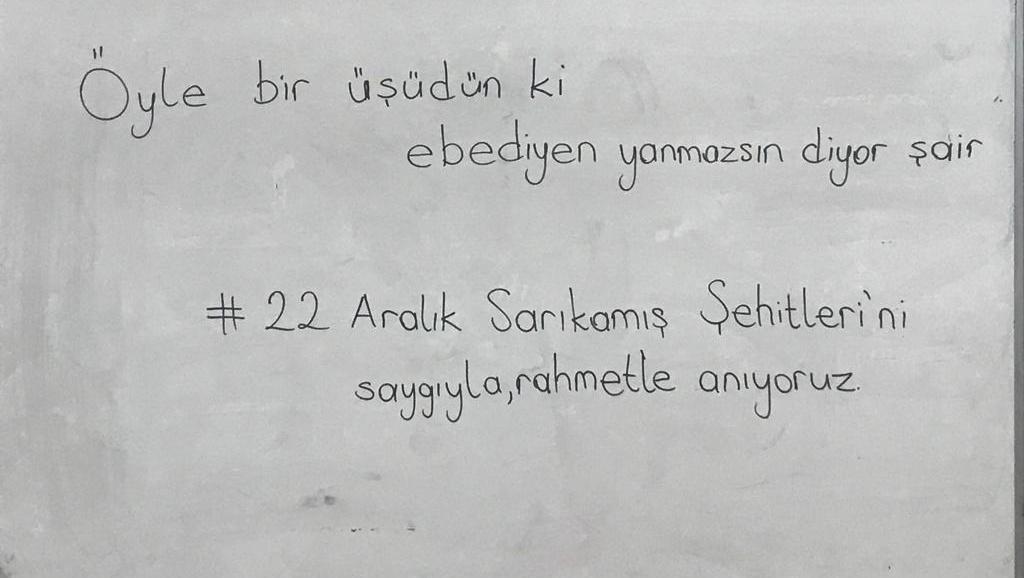 Öyle bir üşüdün ki
ebediyen yanmazsın diyor şair
# 22 Aralık Sarıkamış Şehitleri'ni
saygıyla,rahmetle anıyoruz.